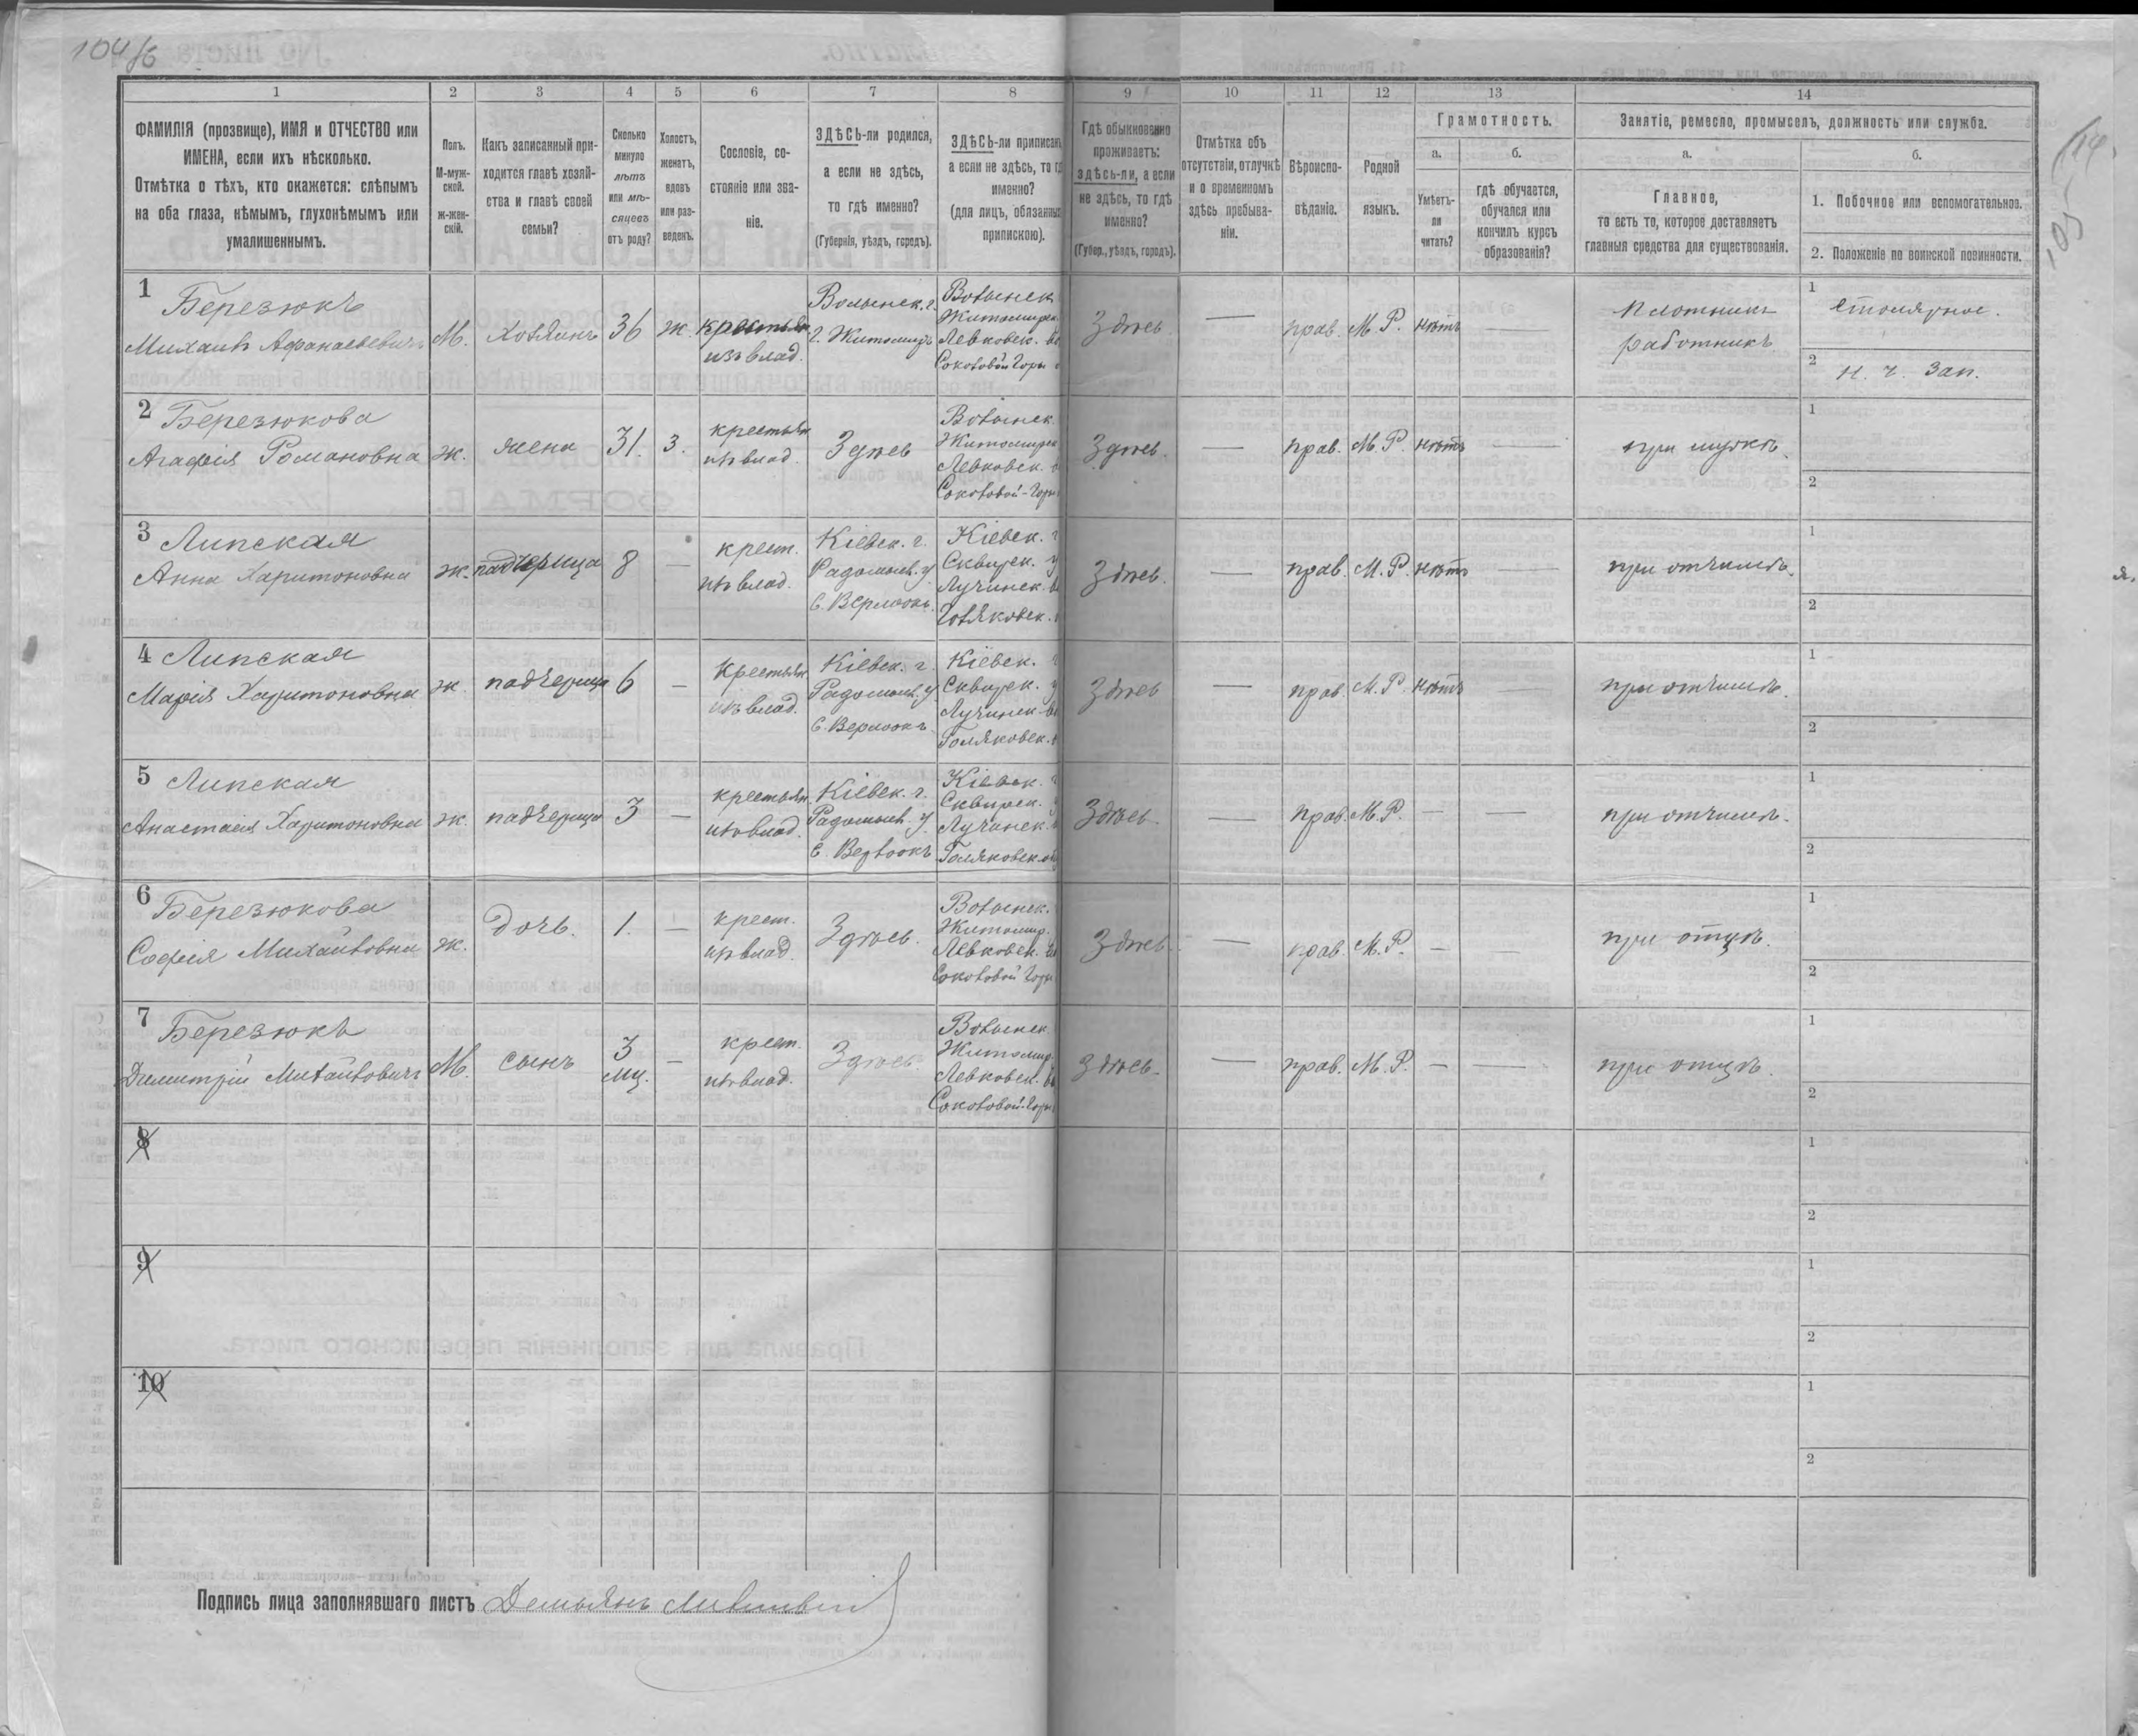 104/6
1 2 3 4 5 6 7 8 9 10 11 12 13 14
ФАМИЛІЯ (прозвище), ИМЯ и ОТЧЕСТВО или
ИМЕНА, если ихъ нѣсколько.
Отмѣтка о тѣхъ, кто окажется: слѣпымъ
на оба глаза, нѣмымъ, глухонѣмымъ или
умалишеннымъ.
Полъ.
М-муж-
ской.
ж-жен-
скій.
Какъ записанный при-
ходится главѣ хозяй-
ства и главѣ своей
семьи?
Сколько
минуло
лѣтъ
или мѣ-
сяцевъ
отъ роду?
Холостъ,
женатъ,
вдовъ
или раз-
веденъ.
Сословіе, со-
стояніе или зва-
ніе.
ЗДѢСЬ-ли родился,
а если не здѣсь,
то гдѣ именно?
(Губернія, уѣздъ, городъ).
ЗДѢСЬ-ли приписанъ
а если не здѣсь, то гд
именно?
(для лицъ, обязанных
припискою).
Гдѣ обыкновенно
проживаетъ:
здѣсь-ли, а если
не здѣсь, то гдѣ
именно?
(Губер., уѣздъ, городъ).
Отмѣтка объ
отсутствіи, отлучкѣ
и о временномъ
здѣсь пребыва-
ніи.
Вѣроиспо-
вѣданіе.
Родной
языкъ.
Грамотность.
а.
Умѣетъ-
ли
читать?
б.
гдѣ обучается,
обучался или
кончилъ курсъ
образованія?
Занятіе, ремесло, промыселъ, должность или служба.
а.
Главное,
то есть то, которое доставляетъ
главныя средства для существованія.
б.
1. Побочное или вспомогательное.
2. Положеніе по воинской повинности.
1
Березюкъ
Михаилъ Афанасьевичъ
М.
Хозяинъ
36
ж.
крестьян
изъ влад.
Волынск. г.
г. Житомиръ
Волынск
Житомирск
Левковск. в
Соколовой Горы
Здѣсь
—
прав.
М. Р.
нѣтъ
Плотникъ
работникъ
1
столярное.
2
н. ч. зап.
2
Березюкова
Агафія Романовна
ж.
жена
31.
з.
крестьян
изъ влад.
Здѣсь
Волынск.
Житомирск
Левковск.
Соколовой-Горы
Здѣсь.
—
прав.
М. Р.
нѣтъ
—
при мужѣ.
1
2
3
Липская
Анна Харитоновна
ж.
падчерица
8
—
крест.
изъ влад.
Кіевск. г.
Радомысл. у
С. Верлоокъ.
Кіевск. г
Сквирск. у
Лучинск. в
Голяковск.
Здѣсь.
—
прав.
М. Р.
нѣтъ
—
при отчимѣ.
1
2
4
Липская
Марія Харитоновна
ж.
падчерица
6
—
Крестьян
изъ влад.
Кіевск. г.
Радомысл. у
С. Верлоокъ
Кіевск.
Сквирск. у
Лучинск. в
Голяковск.
Здѣсь
—
прав.
М. Р.
нѣтъ
—
при отчимѣ.
1
2
5
Липская
Анастасія Харитоновна
ж.
падчерица
3
—
крестьян
изъ влад.
Кіевск. г.
Радомысл. у.
С. Верлоокъ
Кіевск.
Сквирск.
Лучинск.
Голяковск.
Здѣсь.
—
прав.
М. Р.
—
—
при отчимѣ.
1
2
6
Березюкова
Софія Михайловна
ж.
дочь.
1.
—
крест.
изъ влад.
Здѣсь.
Волынск.
Житомир.
Левковск. в
Соколовой Горы
Здѣсь.
—
прав.
М. Р.
—
—
при отцѣ.
1
2
7
Березюкъ
Димитрій Михайловичъ
М.
сынъ
3
мц.
—
крест.
изъ влад.
Здѣсь.
Волынск
Житомир.
Левковск. в
Соколовой-Горы
Здѣсь.
—
прав.
М. Р.
—
—
при отцѣ.
1
2
8
1
2
9
1
2
10
1
2
Подпись лица заполнявшаго листъ Демьянъ